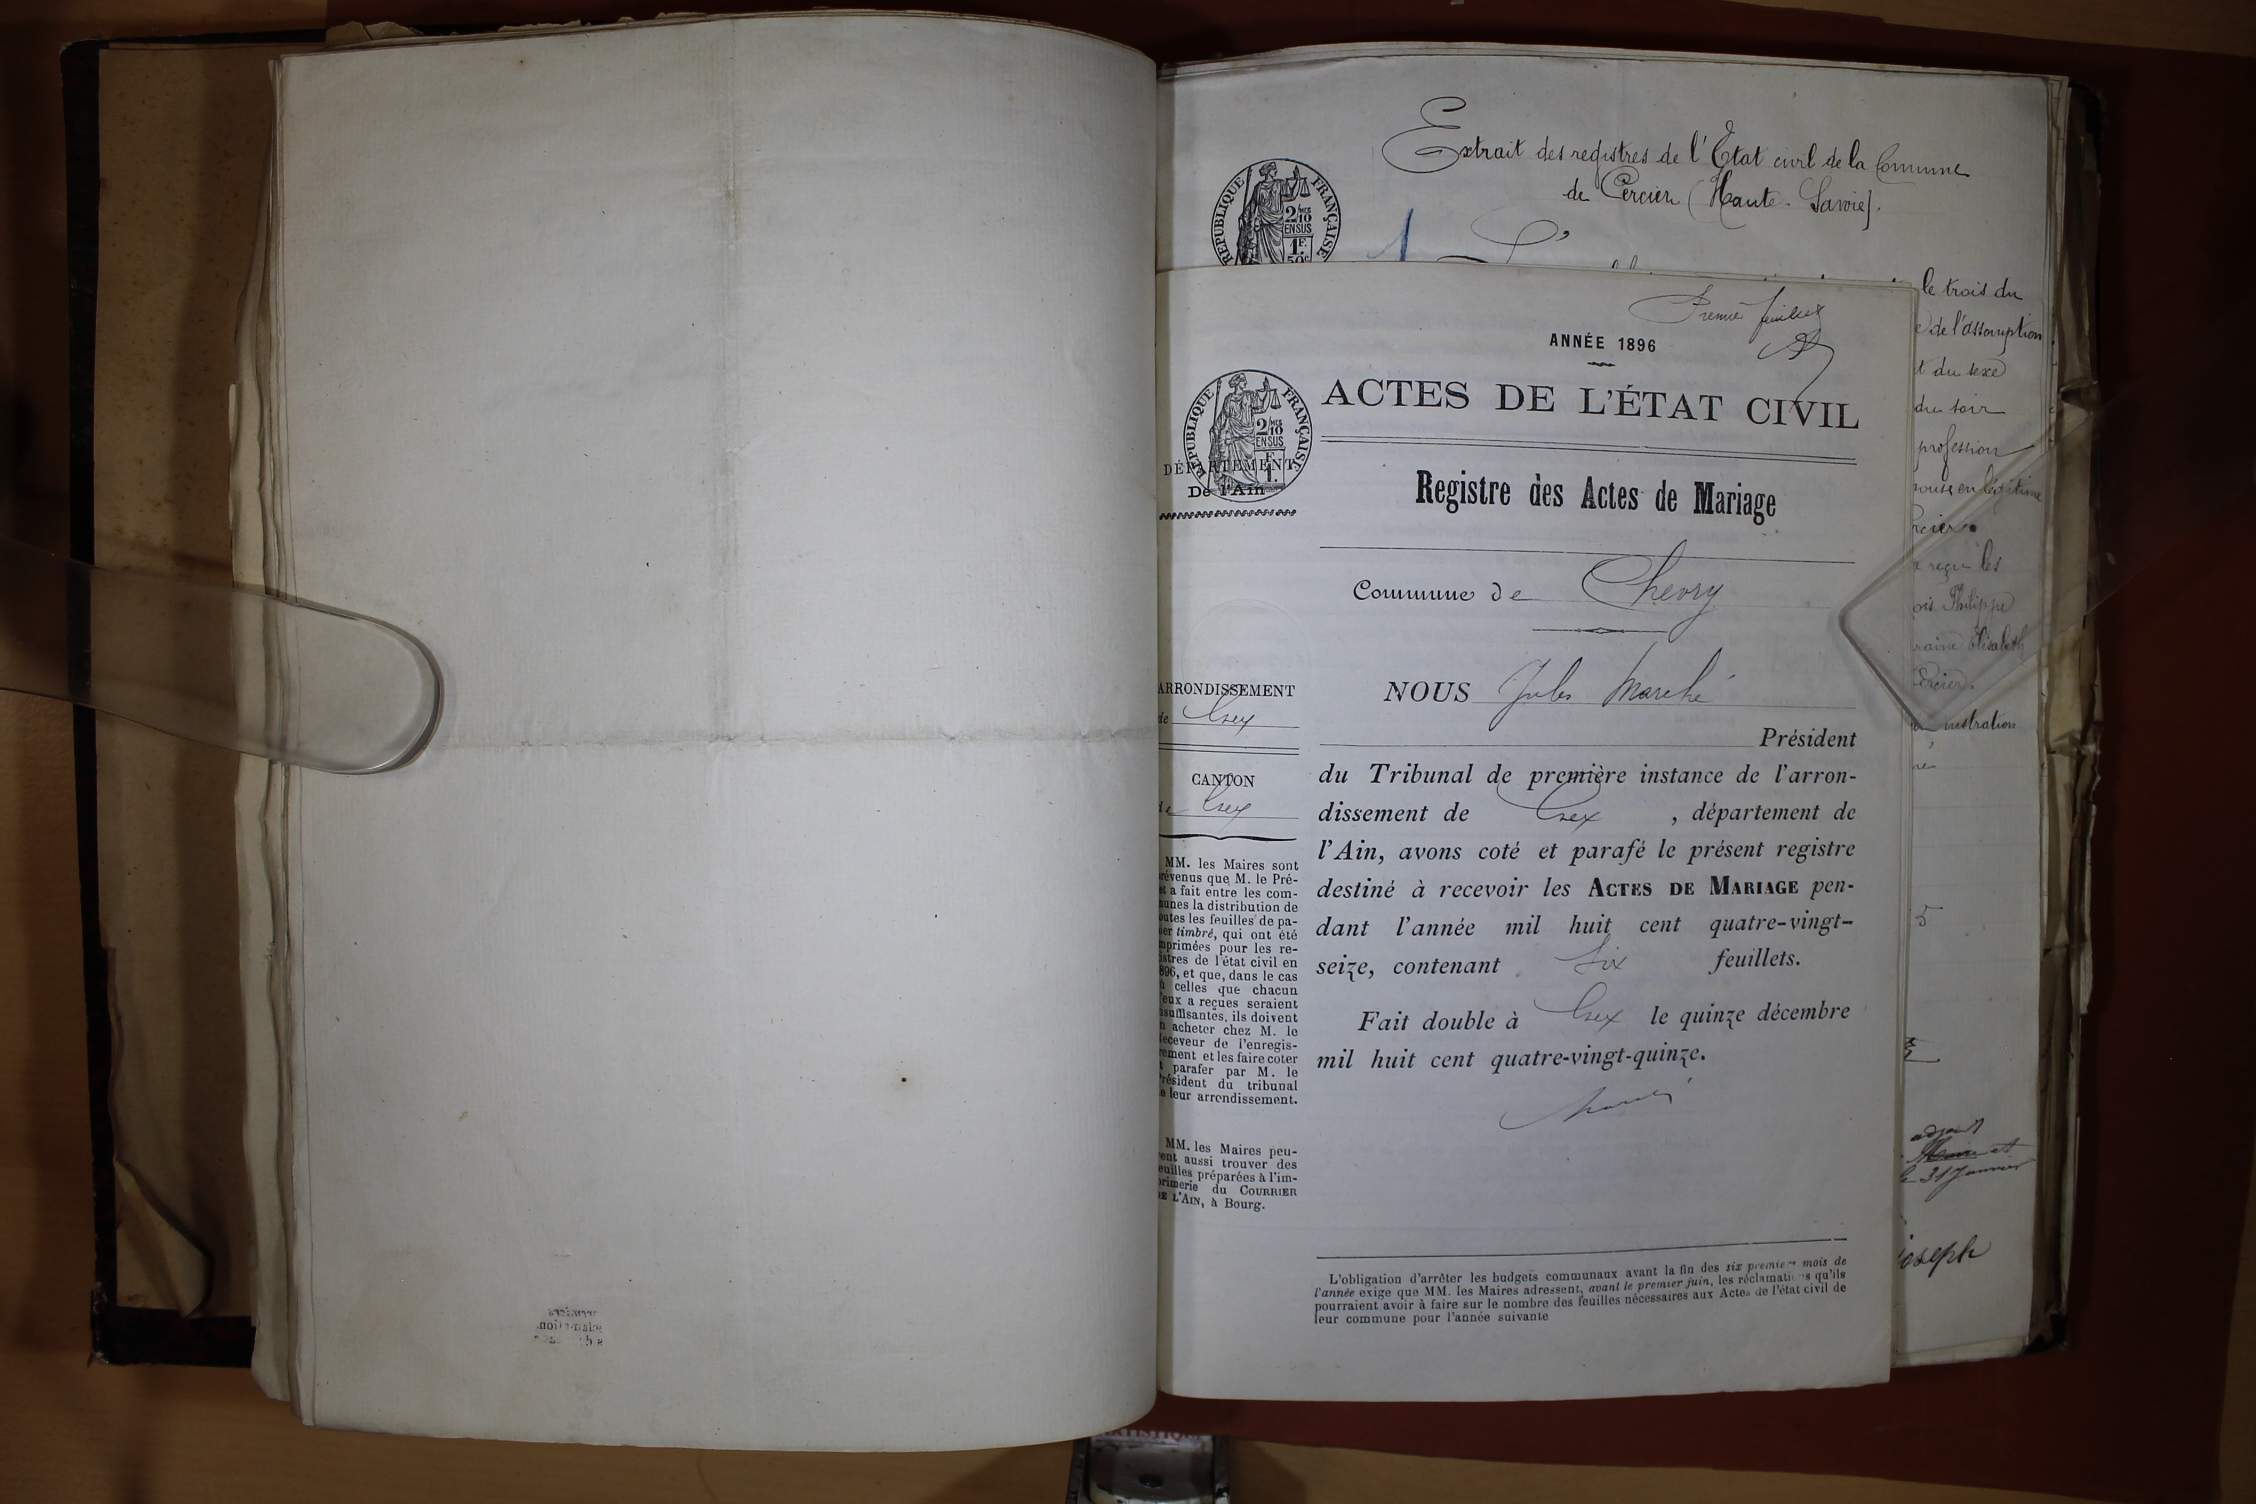 Extrait des registres de l'Etat civil de la Commune
de Cercier (Haute-Savoie).
RÉPUBLIQUE FRANÇAISE
2/10 ES
EN SUS
1F.
50c
L'
le trois du
de l'assomption
du sexe
du soir
profession
en légitime
reçu les
Philippe
Elisabeth
Cercier.
Premier feuillet
ANNÉE 1896
ACTES DE L'ÉTAT CIVIL
RÉPUBLIQUE FRANÇAISE
2/10 ES
EN SUS
1F.
DÉPARTEMENT
De l'Ain
Registre des Actes de Mariage
Commune de Chevry
ARRONDISSEMENT
de Gex
CANTON
de Gex
MM. les Maires sont
révenus que M. le Pré-
et a fait entre les com-
unes la distribution de
outes les feuilles de pa-
ier timbré, qui ont été
mprimées pour les re-
istres de l'état civil en
896, et que, dans le cas
ù celles que chacun
'eux a reçues seraient
nsuffisantes, ils doivent
n acheter chez M. le
eceveur de l'enregis-
rement et les faire coter
t parafer par M. le
résident du tribunal
e leur arrondissement.
MM. les Maires peu-
vent aussi trouver des
euilles préparées à l'im-
primerie du COURRIER
DE L'AIN, à Bourg.
NOUS Jules Marché
Président
du Tribunal de première instance de l'arron-
dissement de Gex , département de
l'Ain, avons coté et parafé le présent registre
destiné à recevoir les ACTES DE MARIAGE pen-
dant l'année mil huit cent quatre-vingt-
seize, contenant Six feuillets.
Fait double à Gex le quinze décembre
mil huit cent quatre-vingt-quinze.
Marché
L'obligation d'arrêter les budgets communaux avant la fin des six premiers mois de
l'année exige que MM. les Maires adressent, avant le premier juin, les réclamations qu'ils
pourraient avoir à faire sur le nombre des feuilles nécessaires aux Actes de l'état civil de
leur commune pour l'année suivante
5
adjoint
Maire et
le 31 Janvier
joseph